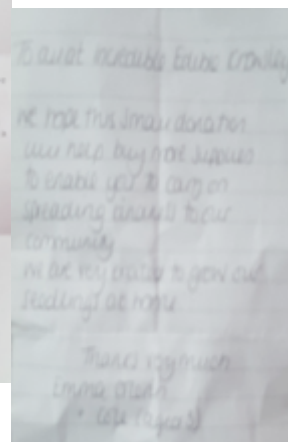 To all at Incredible Edible Crawley
We hope this small donation
will help buy more supplies
to enable you to carry on
spreading to our
community
We are very excited to grow our
seedlings at home
Thanks very much
Emma